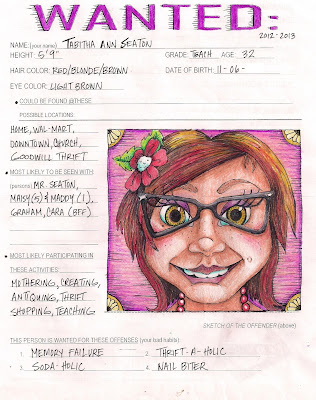 WANTED:
2012-2013
NAME: (your name) TABITHA ANN SEATON
HEIGHT: 5'9" GRADE: TEACH AGE: 32
HAIR COLOR: RED/BLONDE/BROWN DATE OF BIRTH: 11-06-
EYE COLOR: LIGHT BROWN
• COULD BE FOUND @THESE
POSSIBLE LOCATIONS
HOME, WAL-MART,
DOWNTOWN, CHURCH,
GOODWILL THRIFT
• MOST LIKELY TO BE SEEN WITH:
(persons) MR. SEATON,
MAISY(5) & MADDY (1),
GRAHAM, CARA (BFF)
• MOST LIKELY PARTICIPATING IN
THESE ACTIVITIES
MOTHERING, CREATING,
ANTIQUING, THRIFT
SHOPPING, TEACHING
SKETCH OF THE OFFENDER (above)
THIS PERSON IS WANTED FOR THESE OFFENSES (your bad habits)
1. MEMORY FAILURE 2. THRIFT-A-HOLIC
3. SODA-HOLIC 4. NAIL BITER